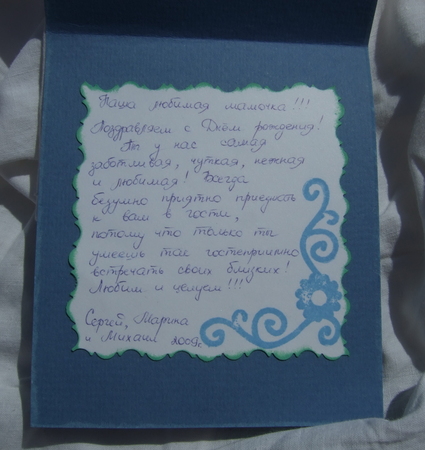 Наша любимая мамочка!!!
Поздравляем с Днём рождения!
Ты у нас самая
заботливая, чуткая, нежная
и любимая! Всегда
безумно приятно приезжать
к вам в гости,
потому что только ты
умеешь так гостеприимно
встречать своих близких!
Любим и целуем!!!
Сергей, Марина
и Михаил 2009г.